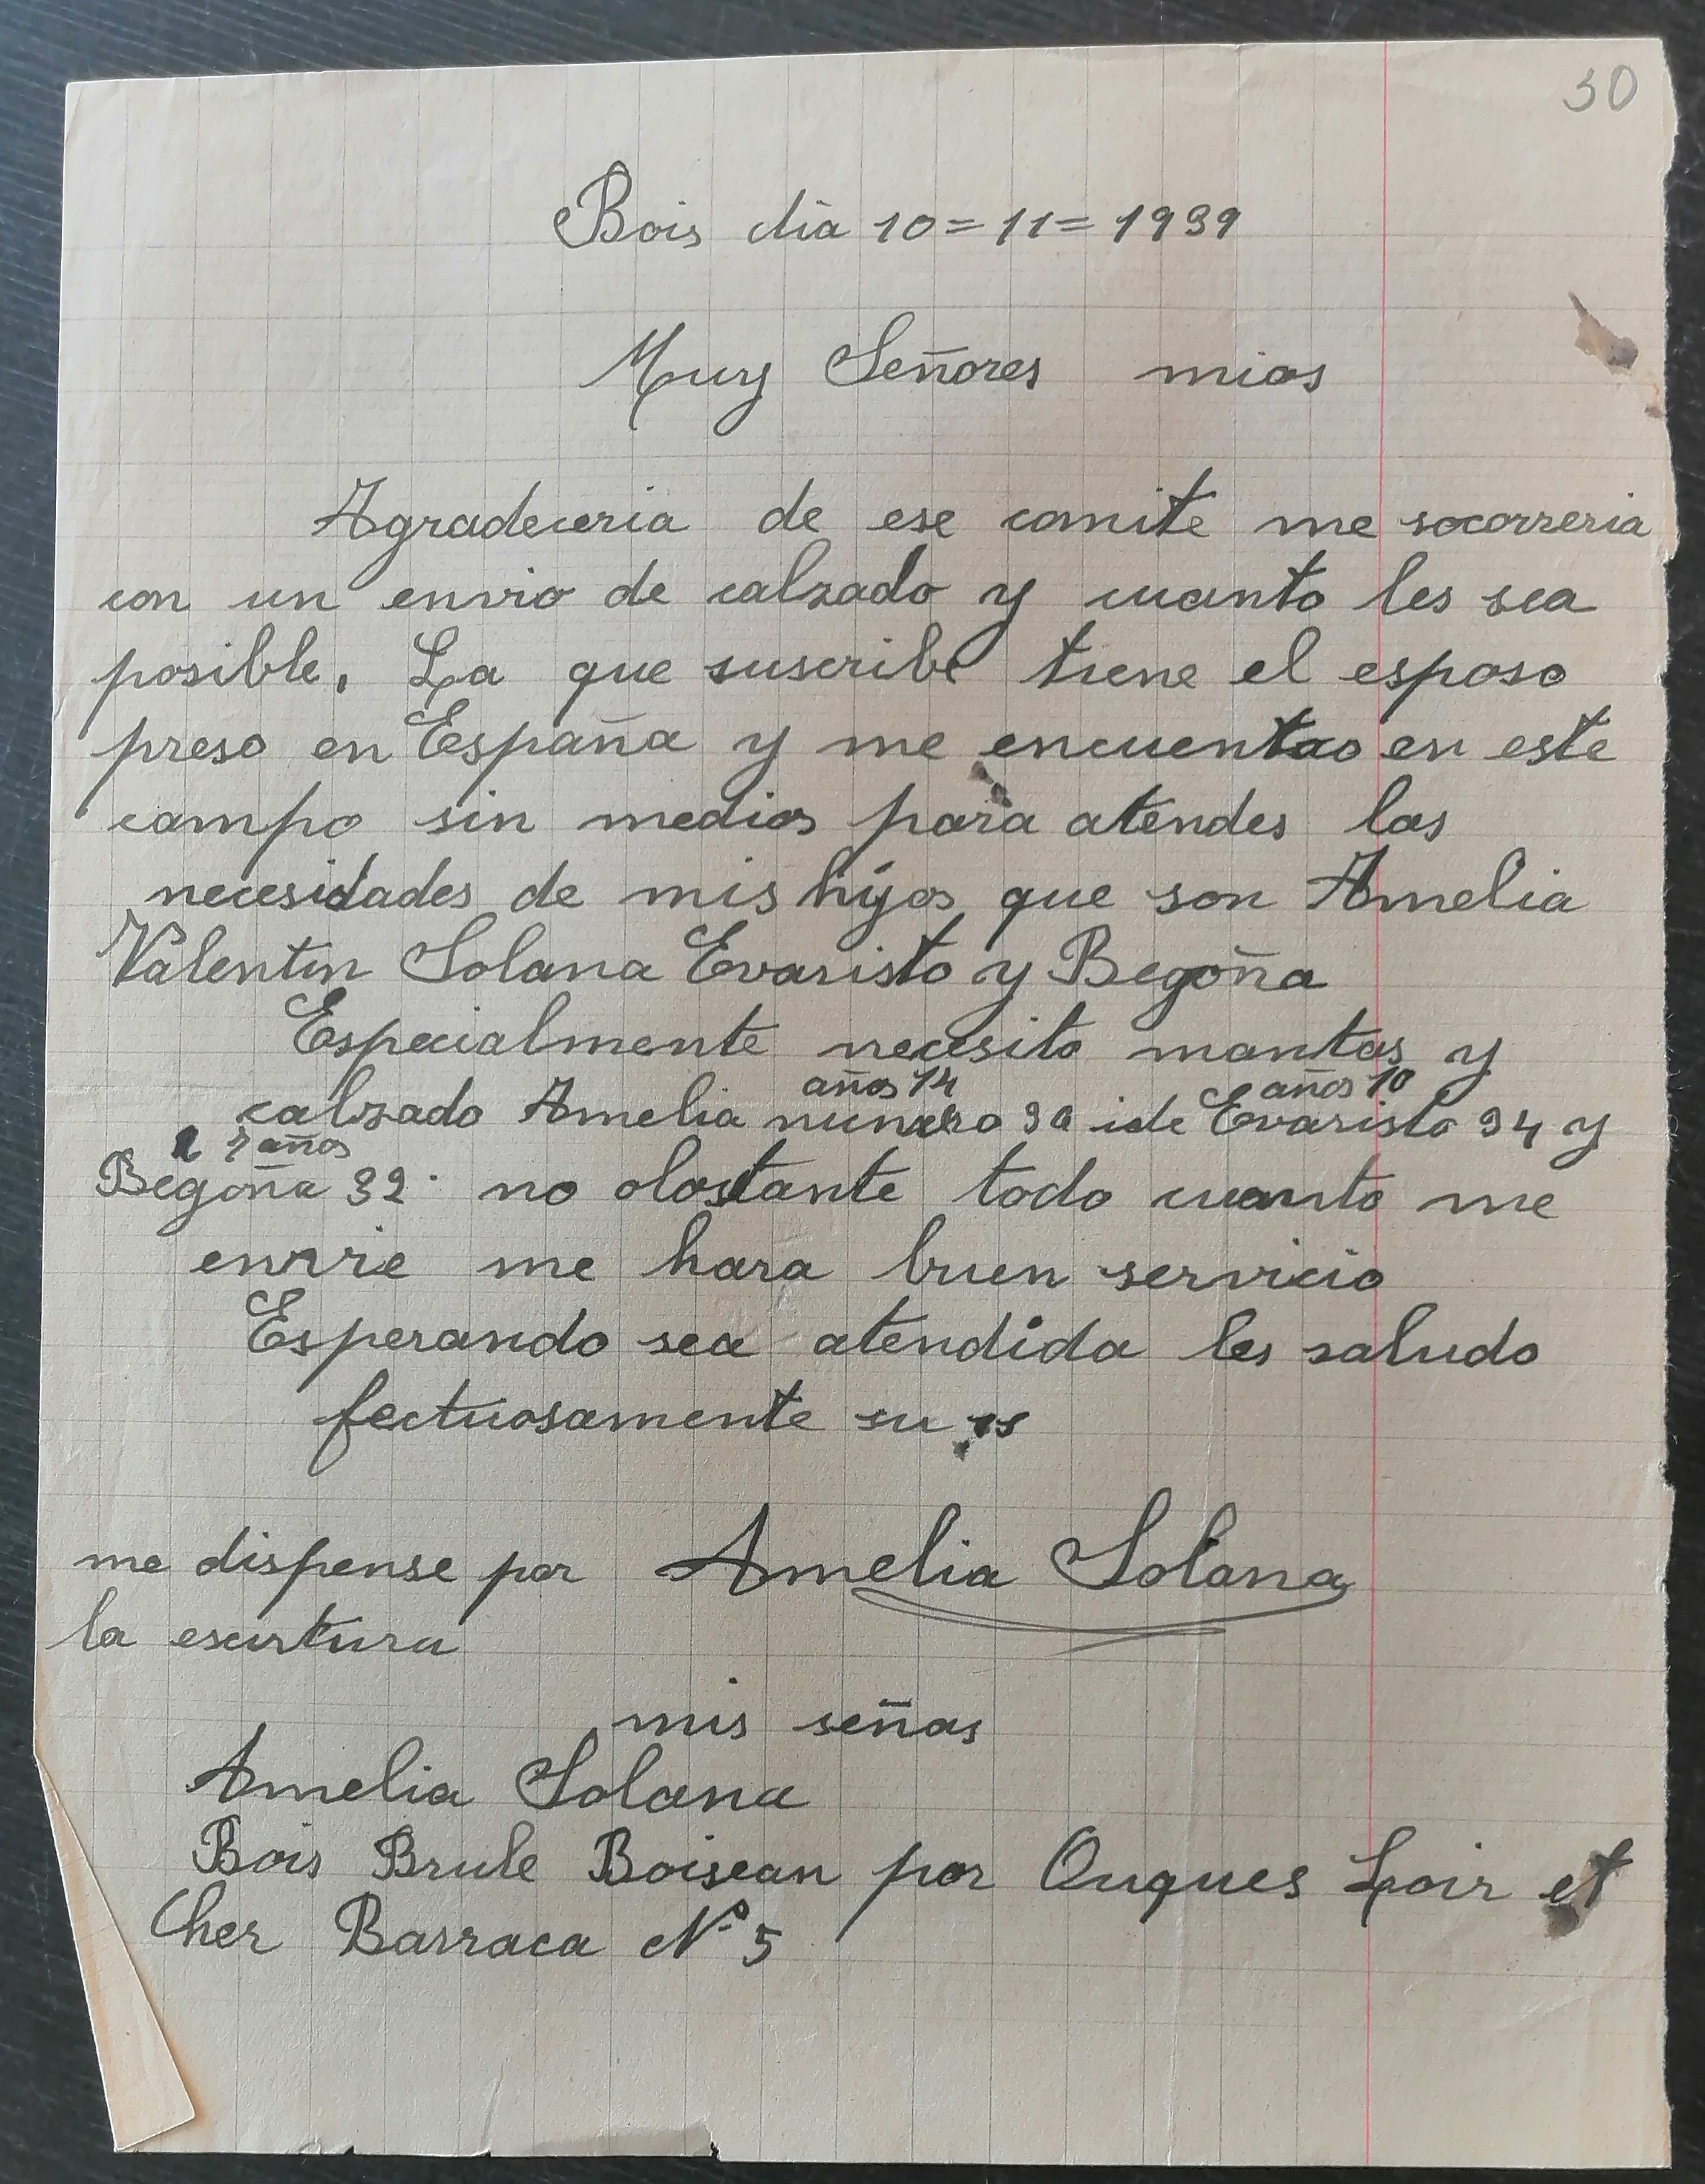 30
Bois dia 10=11=1939
Muy Señores mios
Agradeceria de ese comite me socorreria
con un envio de calzado y cuanto les sea
posible. La que suscribe tiene el esposo
preso en España y me encuentro en este
campo sin medios para atendes las
necesidades de mis hijos que son Amelia
Valentin Solana Evaristo y Begoña
Especialmente necesito mantas y
años 14 años 10
calzado Amelia numero ide Evaristo 34 y
7 años
Begoña 32 no olostante todo cuanto me
envie me hara buen servicio
Esperando sea atendida les saludo
fectuosamente su ss
me dispense por Amelia Solana
la escritura
mis señas
Amelia Solana
Bois Brule Boisean por Ouques Loir et
Cher Barraca Nº 5